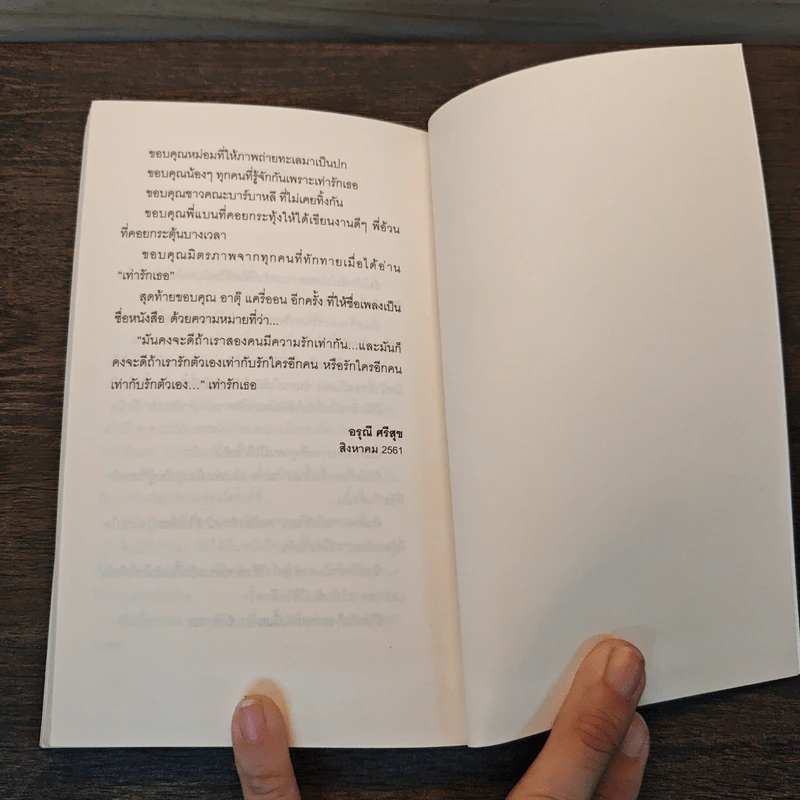 ขอบคุณหม่อมที่ให้ภาพถ่ายทะเลมาเป็นปก
ขอบคุณน้องๆ ทุกคนที่รู้จักกันเพราะเท่ารักเธอ
ขอบคุณชาวคณะบาร์บาหลี ที่ไม่เคยทิ้งกัน
ขอบคุณพี่แบนที่คอยกระทุ้งให้ได้เขียนงานดีๆ พี่อ้วน
ที่คอยกระตุ้นบางเวลา
ขอบคุณมิตรภาพจากทุกคนที่ทักทายเมื่อได้อ่าน
"เท่ารักเธอ"
สุดท้ายขอบคุณ อาตุ๊ แครี่ออน อีกครั้ง ที่ให้ชื่อเพลงเป็น
ชื่อหนังสือ ด้วยความหมายที่ว่า...
"มันคงจะดีถ้าเราสองคนมีความรักเท่ากัน...และมันก็
คงจะดีถ้าเรารักตัวเองเท่ากับรักใครอีกคน หรือรักใครอีกคน
เท่ากับรักตัวเอง..." เท่ารักเธอ
อรุณี ศรีสุข
สิงหาคม 2561